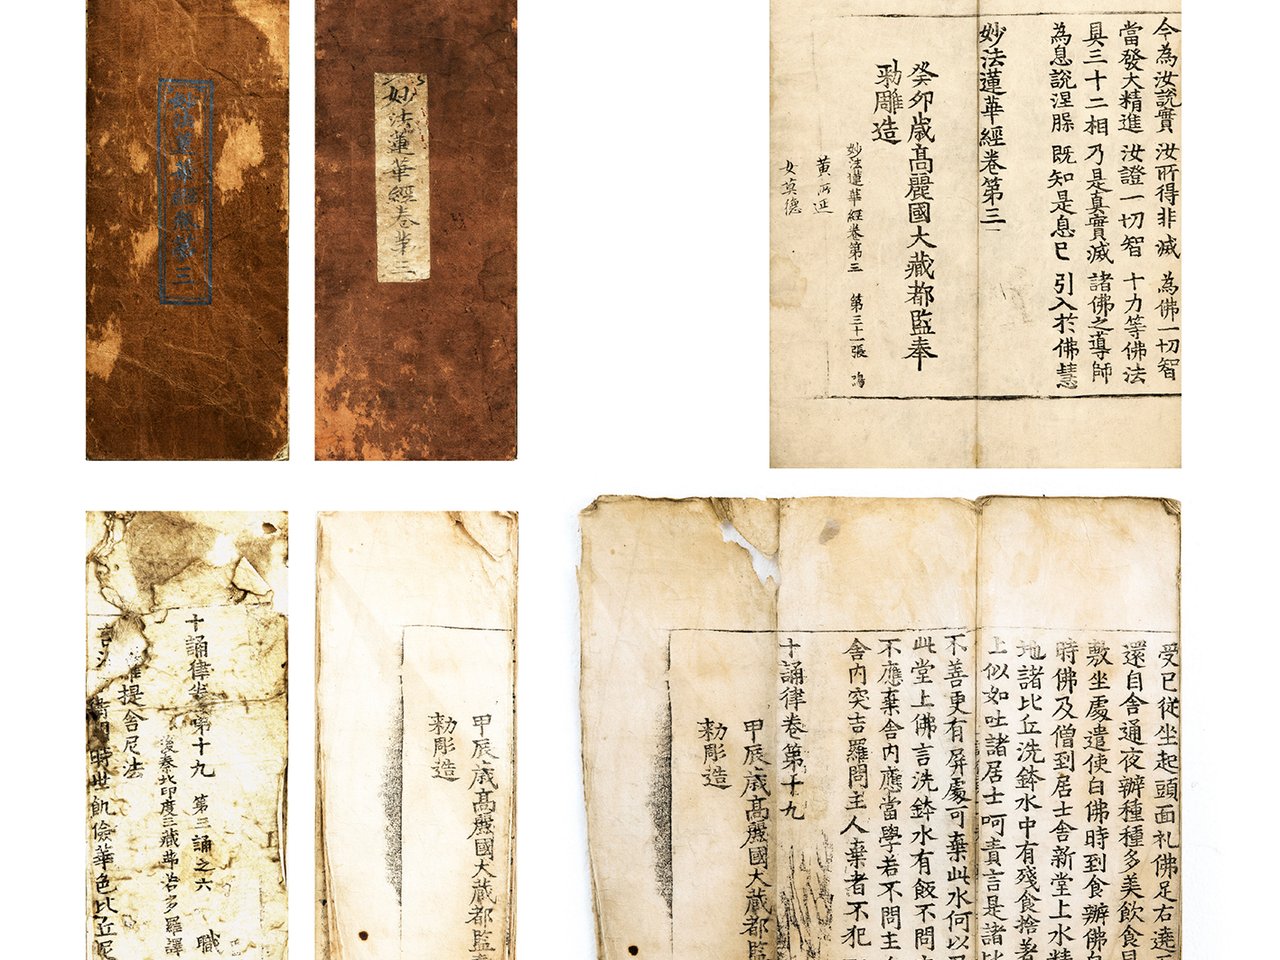 妙法蓮華經卷第三
妙法蓮華經卷第三
今為汝說實 汝所得非滅 為佛一切智
當發大精進 汝證一切智 十力等佛法
具三十二相 乃是真實滅 諸佛之導師
為息說涅脲 既知是息已 引入於佛慧
妙法蓮華經卷第三
癸卯歲高麗國大藏都監奉
勅雕造
妙法蓮華經卷第三 第三十一張
黃
女莫德
十誦律卷第十九 第三誦之六 職
後秦北印度三藏弗若多羅譯
提舍尼法
時世飢儉華色比丘尼
甲辰歲高麗國大藏都監奉
勅彫造
受已從坐起頭面礼佛足右遶
還自舍通夜辦種種多美飲食
敷坐處遣使白佛時到食辦佛
時佛及僧到居士舍新堂上水精
地諸比丘洗鉢水中有殘食捨著
上似如吐諸居士呵責言是諸比
不善更有屏處可棄此水何以
此堂上佛言洗鉢水有飯不問
不應棄舍內應當學若不問主
舍內突吉羅問主人棄者不犯
十誦律卷第十九
甲辰歲高麗國大藏都監
勅彫造